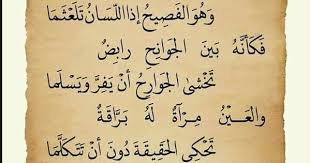 وَهُوَ الفَصِيحُ إذا اللّسَانُ تَلَعْثَمَا
فَكَأنَّهُ بَيْنَ الجَوَانِحِ رابِضٌ
تَخْشى الجَوارِحُ أنْ يَفِرَّ وَيَسْلَما
والعَيْنُ مِرْآةٌ لَهُ بَرَّاقَةٌ
تَحْكِي الحَقِيقَةَ دُونَ أنْ تَتَكَلَّمَا